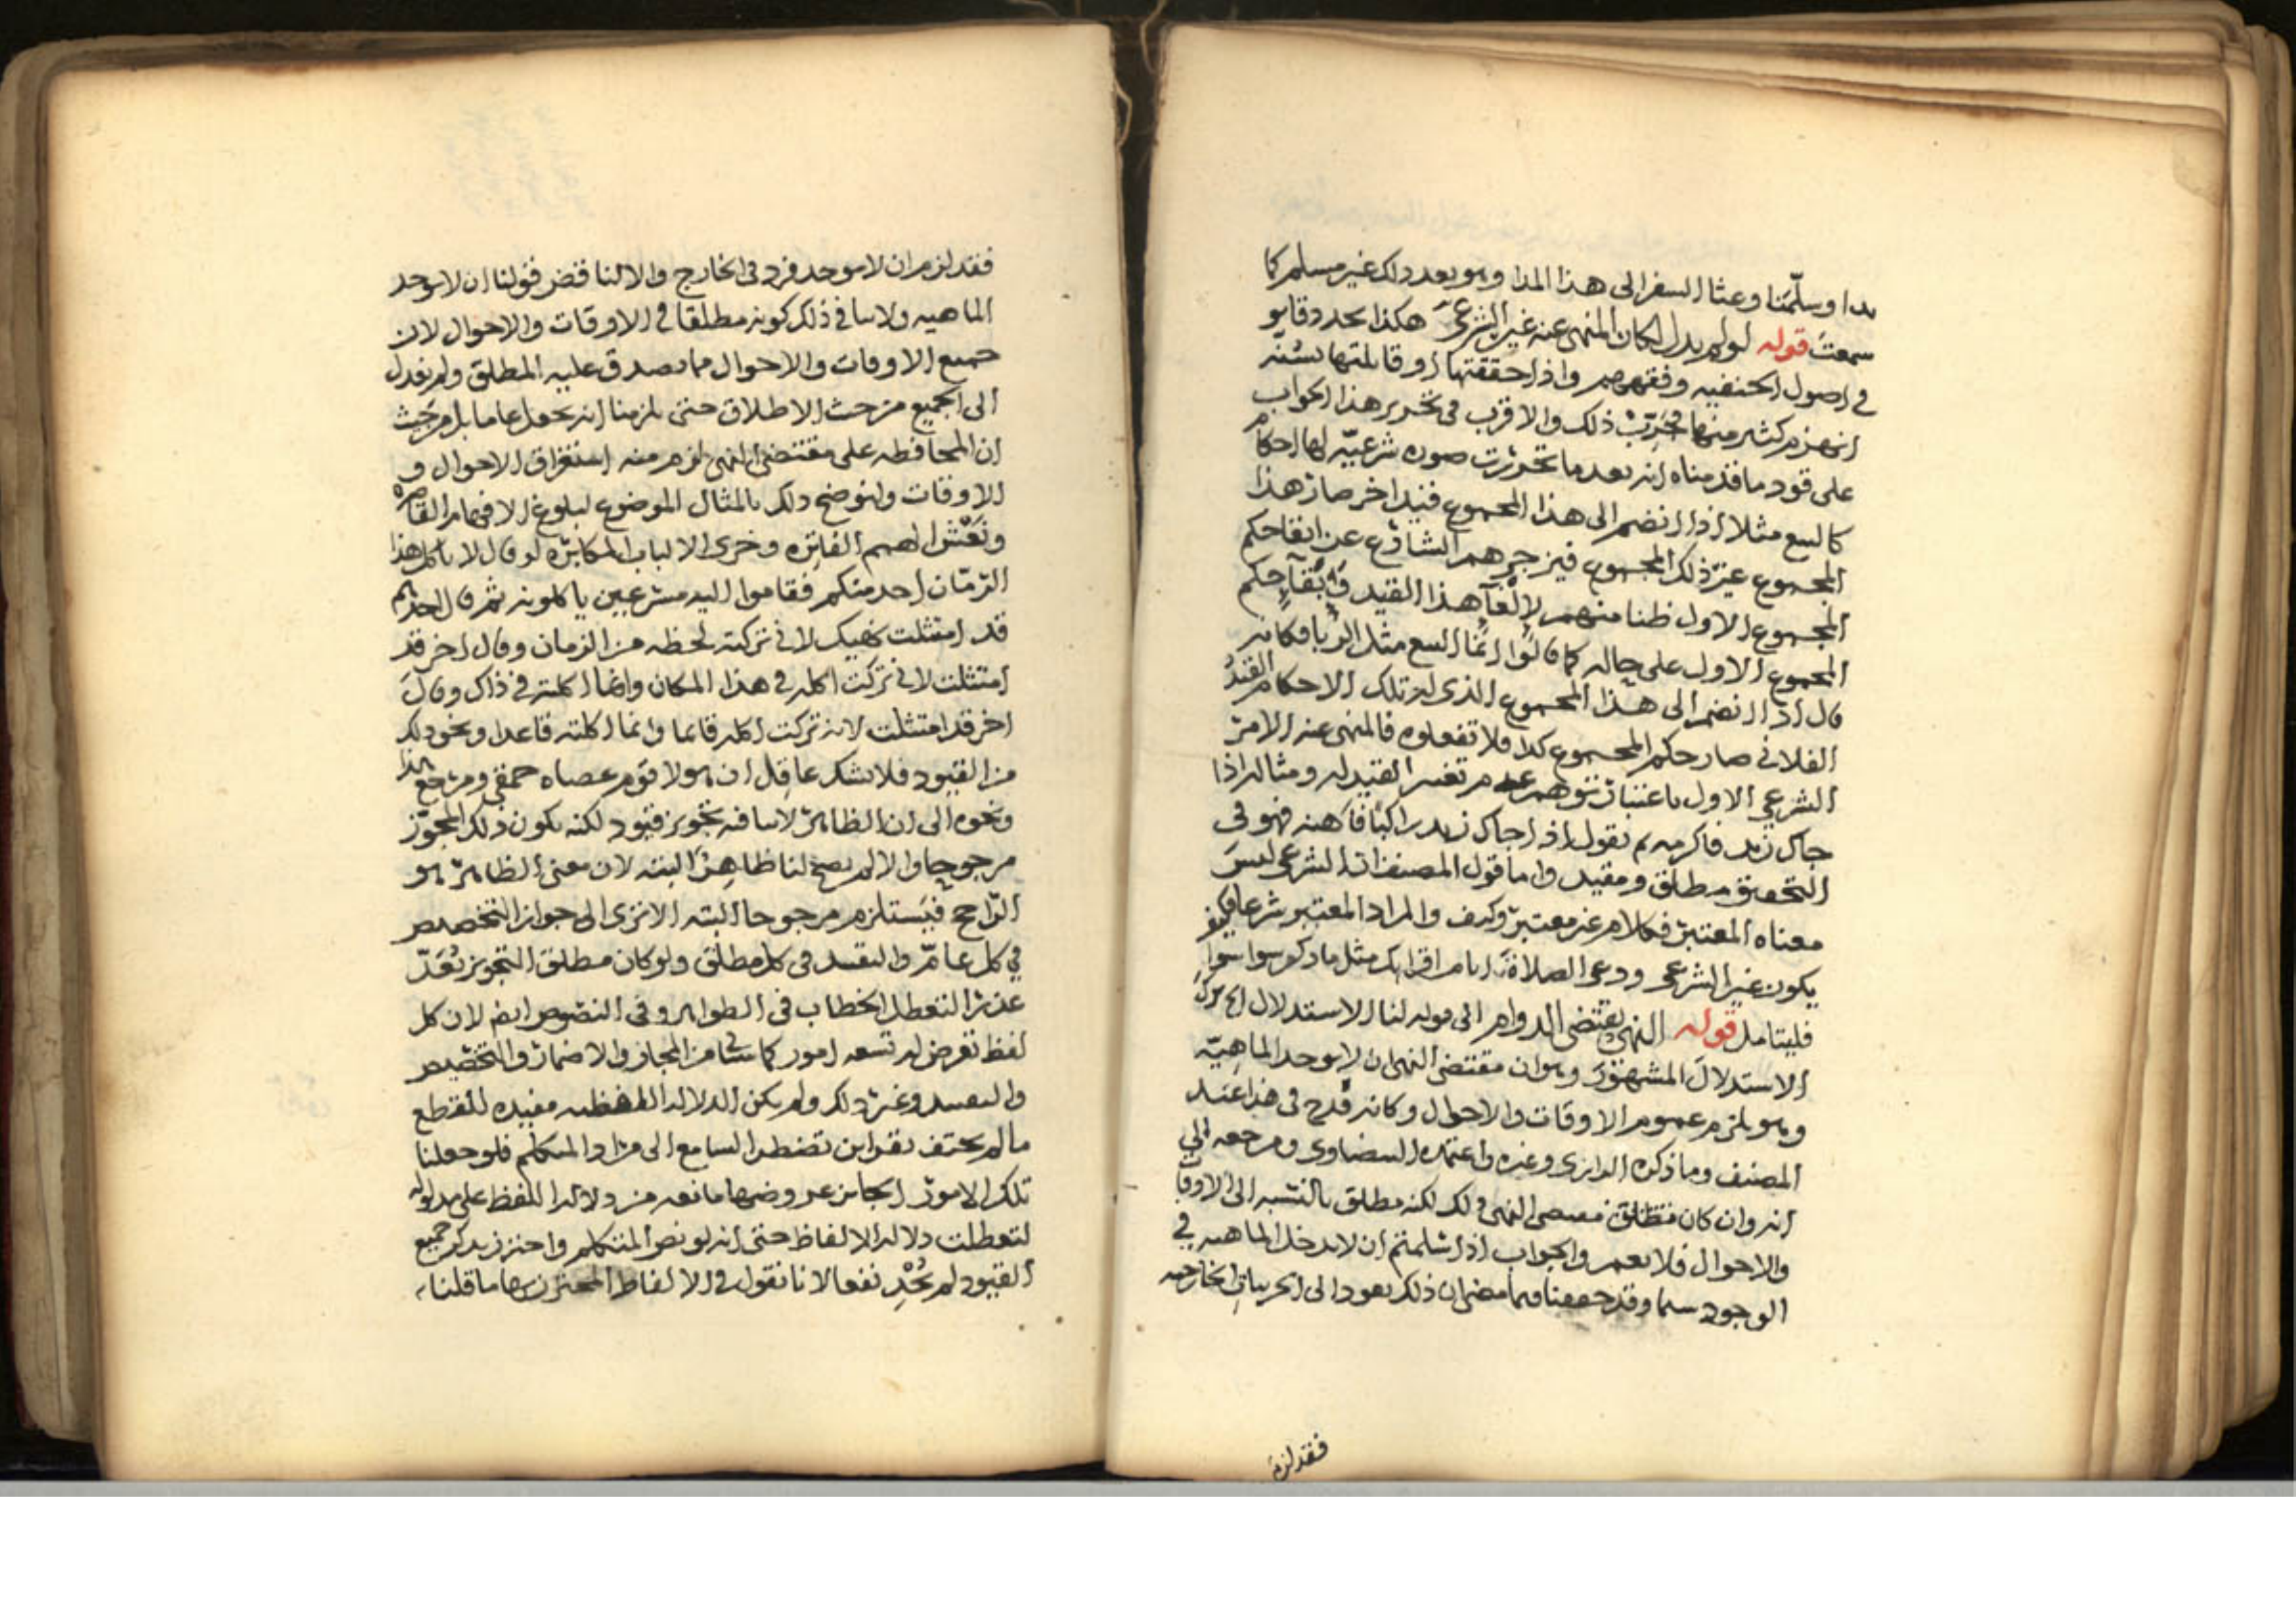 بدا وسلّمنا وعثا السفر الى هذا المدا وهو بعد ذلك غير مسلم كما
سمعت قوله لو لم يدل لكان المنهي عنه غير الشرعي هكذا
في اصول الحنفيه وفقههم واذا حققتها او قابلتها بسنّة
ذلك والاقرب في تحرير هذا الجواب
على قود ما قدمناه انه بعد ما تحررت صوره شرعيّه لها احكام
كالبيع مثلا اذا انضم الى هذا المجموع قيد اخر صار هذا
المجموع غير ذلك المجموع فيزجرهم الشارع عن ابقا حكم
المجموع الاول ظنا منهم لالغآ هذا القيد وابقآ حكم
المجموع الاول على حاله كما قالوا انما البيع مثل الربا فكانه
قال اذا انضم الى هذا المجموع الذي له تلك الاحكام القيد
الفلاني صار حكم المجموع كذا فلا تفعلوه فالمنهي عنه الامر
الشرعي الاول باعتبار توهم عدم تغيير القيد له ومثاله اذا
جاك زيد فاكرمه ثم تقول اذا جاك زيد راكبا فاهنه فهو في
التحقيق مطلق ومقيد واما قول المصنف ان الشرعي ليس
معناه المعتبر فكلام غير معتبر وكيف والمراد المعتبر شرعا فكيف
يكون غير الشرعي ودعي الصلاة ايام اقرائك مثل ما ذكر سوا سوا
فليتامل قوله النهي يقتضي الدوام الى قوله لنا الاستدلال الخ ترك
الاستدلال المشهور وهو ان مقتضى النهي ان لا يوجد الماهيّه
وهو يلزم عموم الاوقات والاحوال وكانه قدح في هذا عند
المصنف وما ذكره الرازي وغيره واعتمده البيضاوي ومرجعه الى
انه وان كان مطلق لكنه مطلق بالنسبه الى الاوقا
والاحوال فلا يعم والجواب اذا سلمتم ان لا يدخل الماهيه في
الوجود سيما وقد حققنا فيما مضى ان ذلك يعود الى الجزييات الخارجيه
فقد لزم
فقد لزم ان لا يوجد فرد في الخارج والا لناقض قولنا ان لا يوجد
الماهيه ولا ينافي ذلك كونه مطلقا في الاوقات والاحوال لان
جميع الاوقات والاحوال مما يصدق عليه المطلق ولم نعدل
الى الجميع من حيث الاطلاق حتى يلزمنا انه يجعل عاما بل من حيث
ان المحافظه على مقتضى النهي لزم منه استغراق الاحوال و
الاوقات ولنوضح ذلك بالمثال الموضوع لبلوغ الافهام القاصره
الهمم الفاتره الالباب المكابره لو قال لا ياكل هذا
الرمّان احد منكم فقاموا اليه مسرعين ياكلونه ثم قال احدهم
قد امتثلت نهيك لاني تركته لحظه من الزمان وقال اخر قد
امتثلت لاني تركت اكله في هذا المكان وانما اكلته في ذاك وقال
اخر قد امتثلت لانه تركت اكله قائما وانما اكلته قاعدا ونحو ذلك
من القيود فلا يشك عاقل ان هولا قوم عصاه حمقى ومرجع هذا
ونحوه الى ان الظاهر لا ينافيه تجويز قيود لكنه يكون ذلك المجوّز
مرجوحا والا لم يصح لنا ظاهرا البته لان معنى الظاهر هو
الرّاجح فيستلزم مرجوحا البته الا ترى الى جواز التخصيص
في كل عامّ والتقييد في كل مطلق ولو كان مطلق التجويز يُعَدّ
عذرا لتعطل الخطاب في الظواهر وفي النصوص ايضا لان كل
لفظ تعرض له تسعه امور كما سياتي من المجاز والاضمار والتخصيص
والتقييد وغير ذلك ولم يكن الدلاله اللفظيه مفيده للقطع
ما لم يحتف بقراين تضطر السامع الى مراد المتكلم فلو جعلنا
تلك الامور الجائز عروضها مانعه من دلاله اللفظ على مدلوله
لتعطلت دلاله الالفاظ حتى انه لو نص المتكلم واحترز بذكر جميع
القيود لم يُجْدِ نفعا لانا نقول في الالفاظ المحترز بها ما قلنا